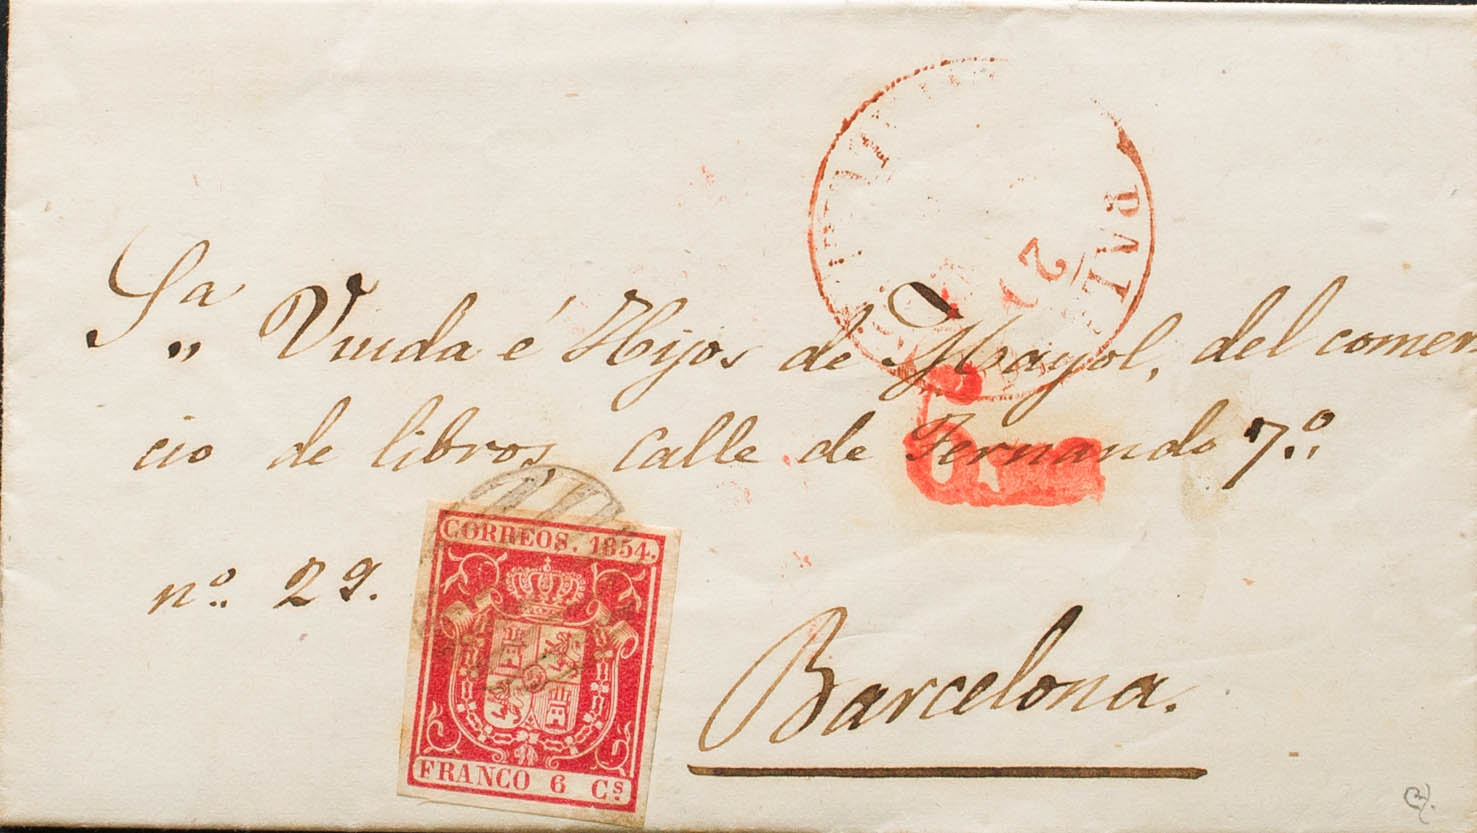 Sa „ Viuda é Hijos de Mayol, del comer
cio de libros, calle de Fernando 7.º
nº. 29.
Barcelona.
CORREOS. 1854.
FRANCO 6 Cs.